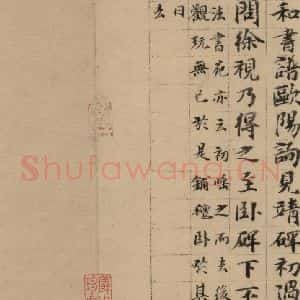 和書譜歐陽詢見靖碑初過
閱徐視乃得之至卧碑下不
法書苑亦云初唾之而去後
觀玩無已於是鋪氈卧於其
日
Shufawang.CN